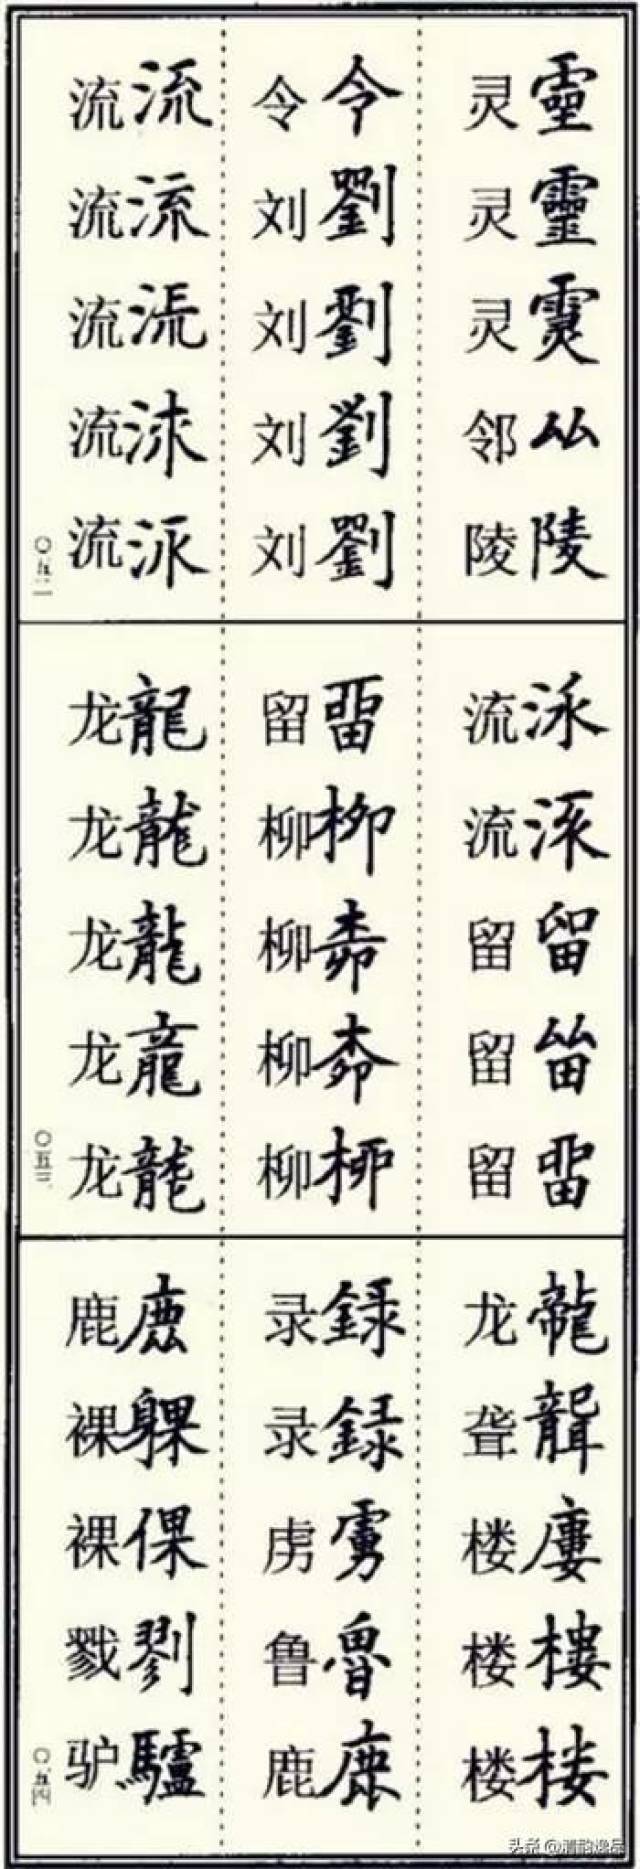 灵
灵靈
灵
邻厸
陵陵
令令
刘劉
刘
刘
刘劉
流流
流
流
流
流
〇五二
流
流
留留
留
留畱
留畱
柳柳
柳
柳
柳桺
龙龍
龙龍
龙龍
龙龍
龙龍
〇五三
龙
聋聾
楼廔
楼樓
楼楼
录録
录録
虏
鲁魯
鹿
鹿
裸躶
裸倮
戮剹
驴驢
〇五四
头条